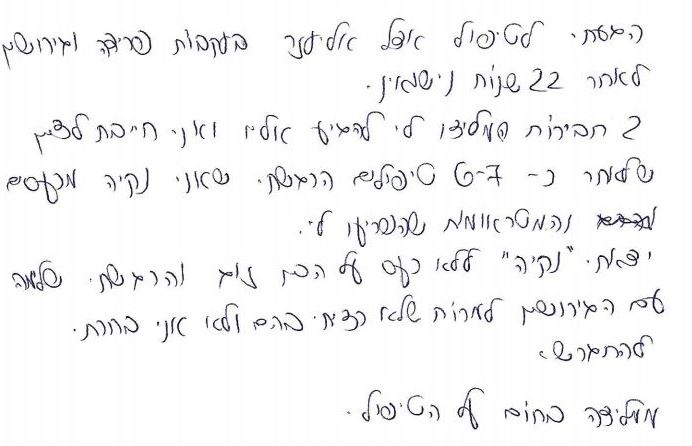 הגעתי לטיפול אצל אליענר בעקבות פרידה וגירושים
לאחר 22 שנות נישואין.
2 חברות המליצו לי להגיע אליו ואני חייבת לציין
שלאחר כ- 6-7 טיפולים הרגשתי שאני נקיה מכעסים
והמטראומות שהפריעו לי.
יצאתי "נקיה" ללא כעס על הבן זוג והרגשתי שלמה
עם הגירושים למרות שלא רציתי בהם ולא אני בחרתי
להתגרש.
ממליצה בחום על הטיפול.